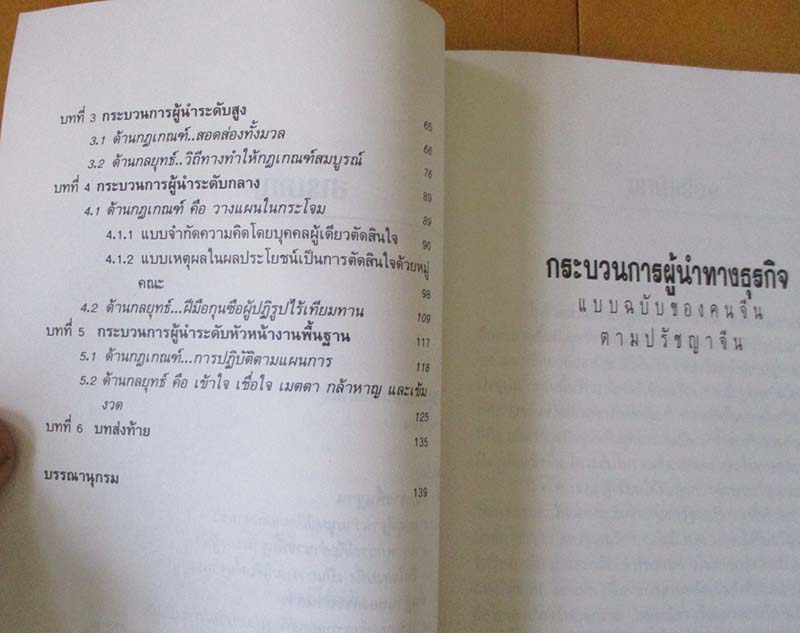 บทที่ 3 กระบวนการผู้นำระดับสูง 65
3.1 ด้านกฎเกณฑ์..สอดส่องทั้งมวล 66
3.2 ด้านกลยุทธ์..วิถีทางทำให้กฎเกณฑ์สมบูรณ์ 76
บทที่ 4 กระบวนการผู้นำระดับกลาง 89
4.1 ด้านกฎเกณฑ์ คือ วางแผนในกระโจม 89
4.1.1 แบบจำกัดความคิดโดยบุคคลผู้เดียวตัดสินใจ 90
4.1.2 แบบเหตุผลในผลประโยชน์เป็นการตัดสินใจด้วยหมู่
คณะ 98
4.2 ด้านกลยุทธ์...ฝีมือกุนซือผู้ปฏิรูปไร้เทียมทาน 109
บทที่ 5 กระบวนการผู้นำระดับหัวหน้างานพื้นฐาน 117
5.1 ด้านกฎเกณฑ์...การปฏิบัติตามแผนการ 118
5.2 ด้านกลยุทธ์ คือ เข้าใจ เชื่อใจ เมตตา กล้าหาญ และเข้ม
งวด 125
บทที่ 6 บทส่งท้าย 135
บรรณานุกรม 139
กระบวนการผู้นำทางธุรกิจ
แบบฉบับของคนจีน
ตามปรัชญาจีน